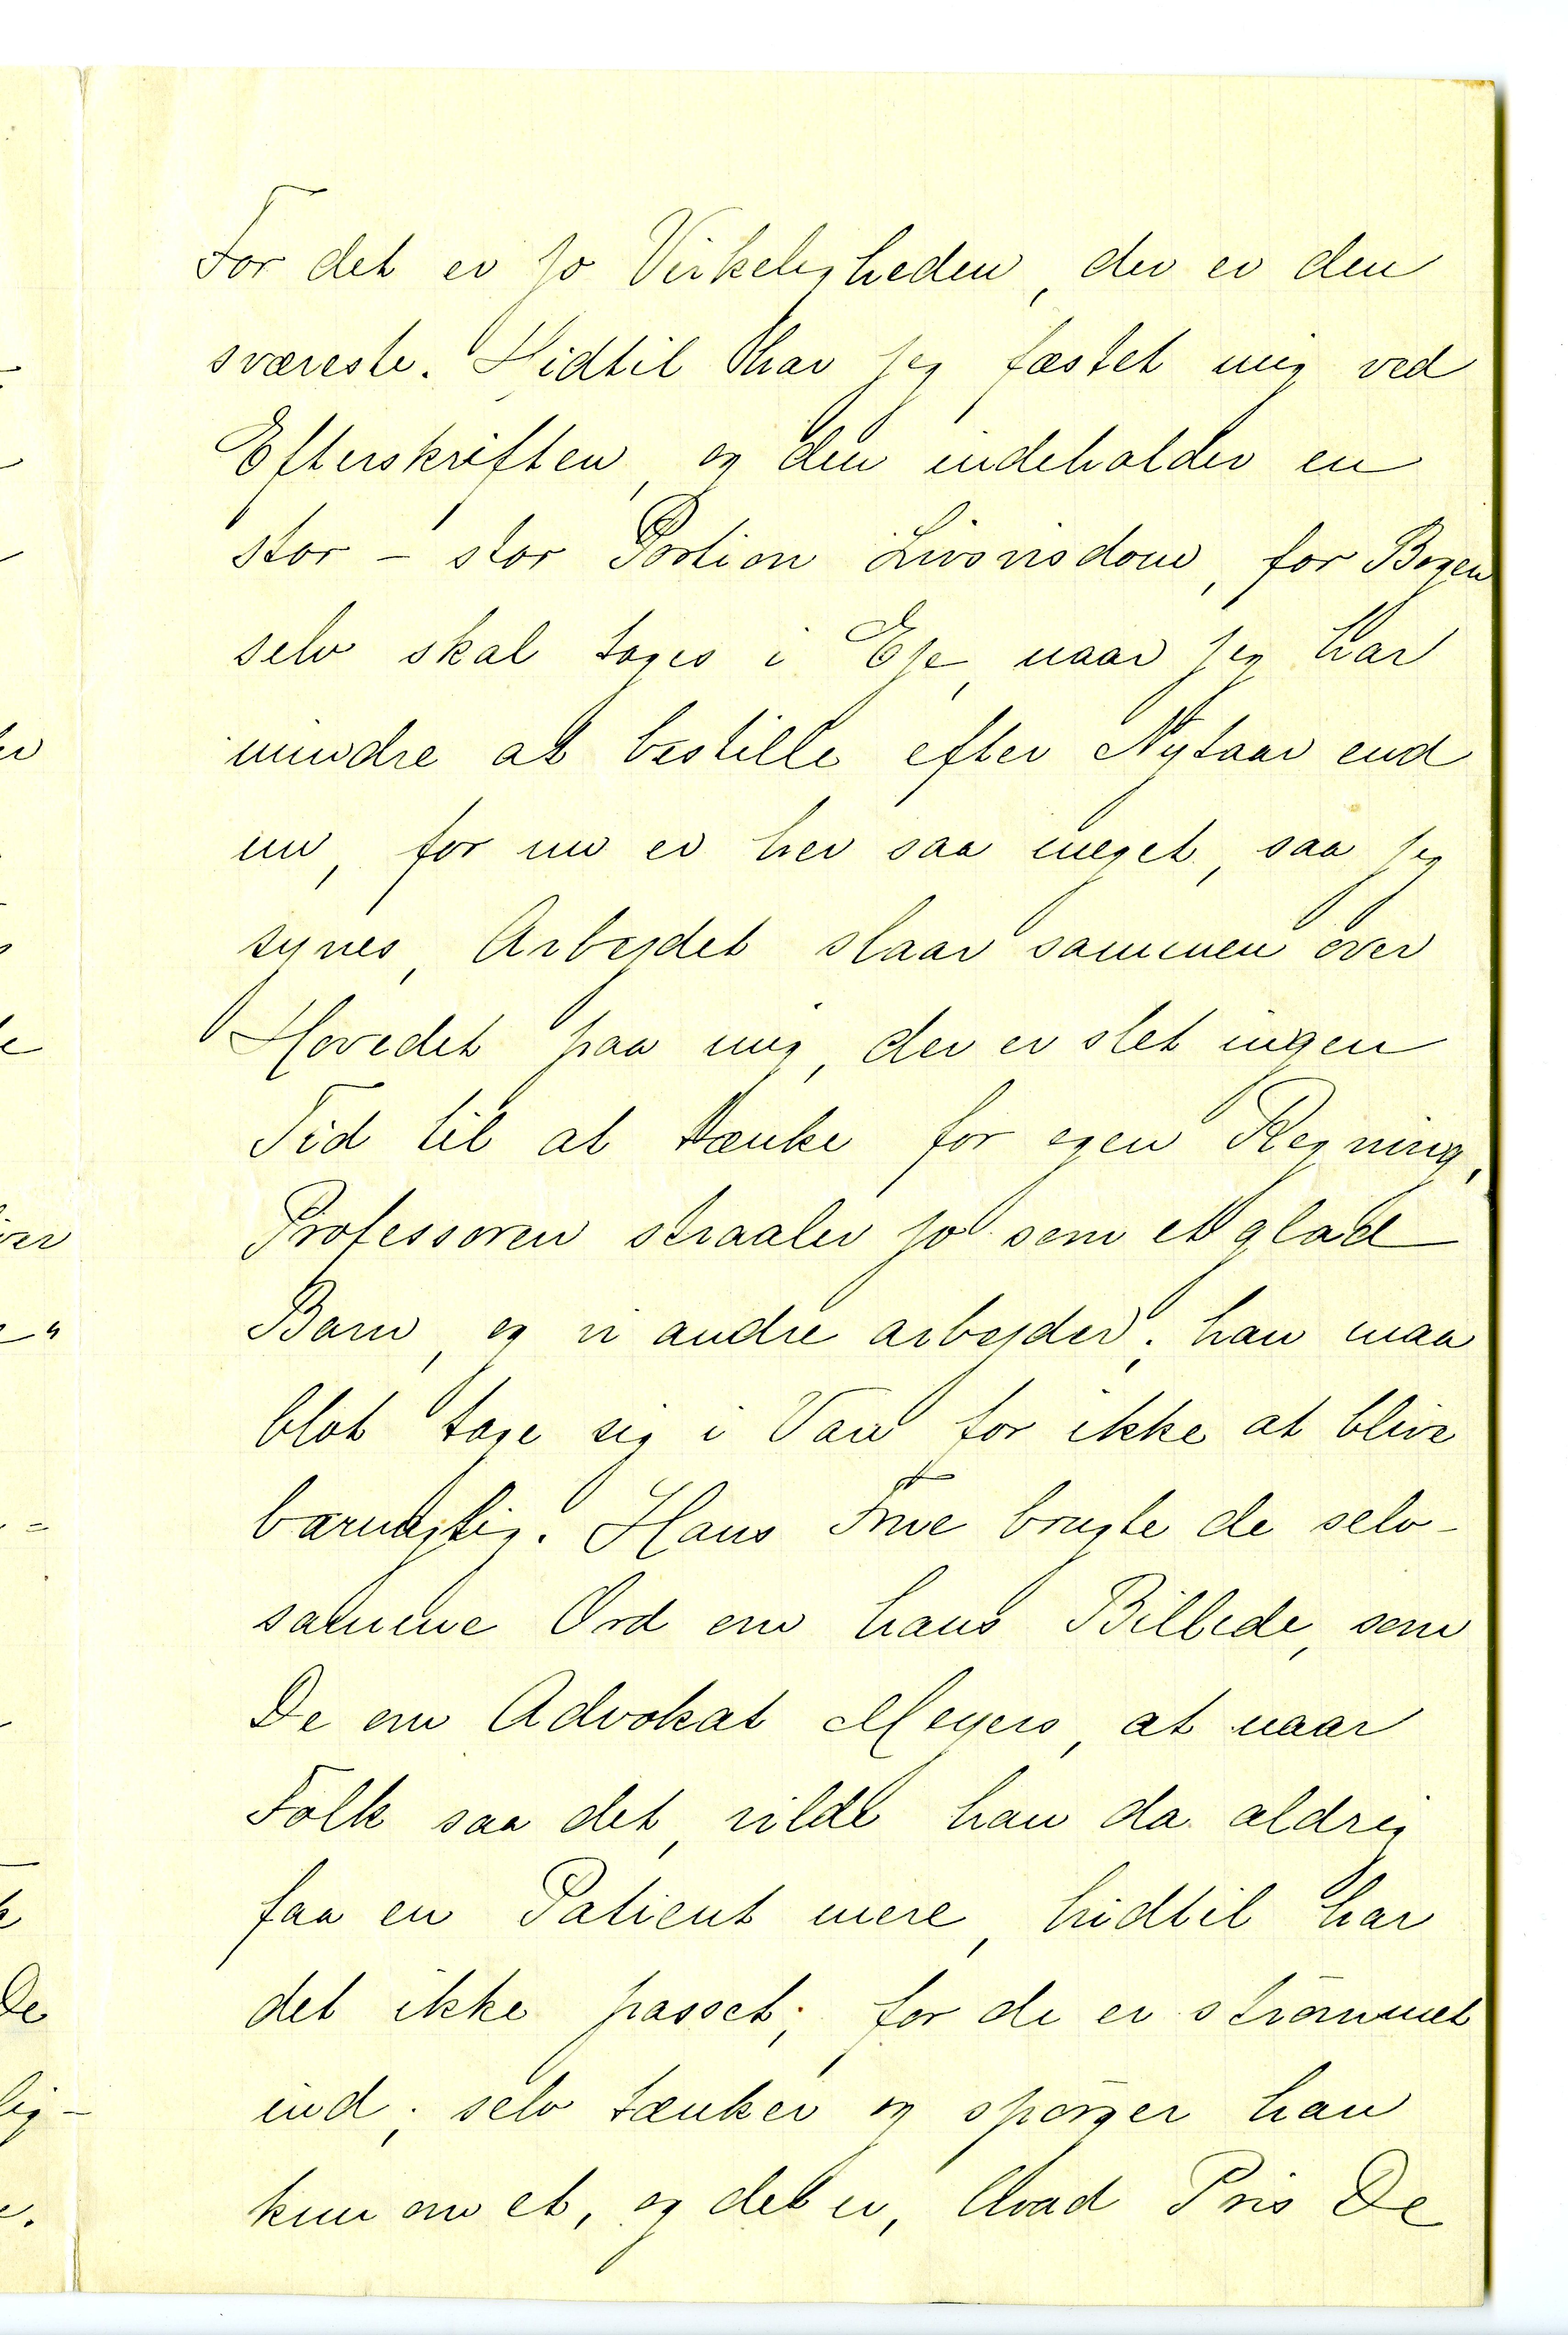 For det er jo Virkeligheden, der er den
sværeste. Hidtil har jeg fæstet mig ved
Efterskriften, og den indeholder en
stor – stor Portion Livsvisdom, for Bogen
selv skal tages i Eje, naar jeg har
mindre at bestille efter Nytaar end
nu, for nu er her saa meget, saa jeg
synes, Arbejdet slaar sammen over
Hovedet paa mig, der er slet ingen
Tid til at tænke for egen Regning,
Professoren straaler jo som et glad
Barn, og vi andre arbejder; han maa
blot tage sig i Vare for ikke at blive
barnagtig. Hans Frue brugte de selv-
samme Ord om hans Billede, som
De om Advokat Meyers, at naar
Folk saa det, vilde han da aldrig
faa en Patient mere, hidtil har
det ikke passet; for de er strömmet
ind; selv tænker og spörger han
kun om et, og det er, hvad Pris De